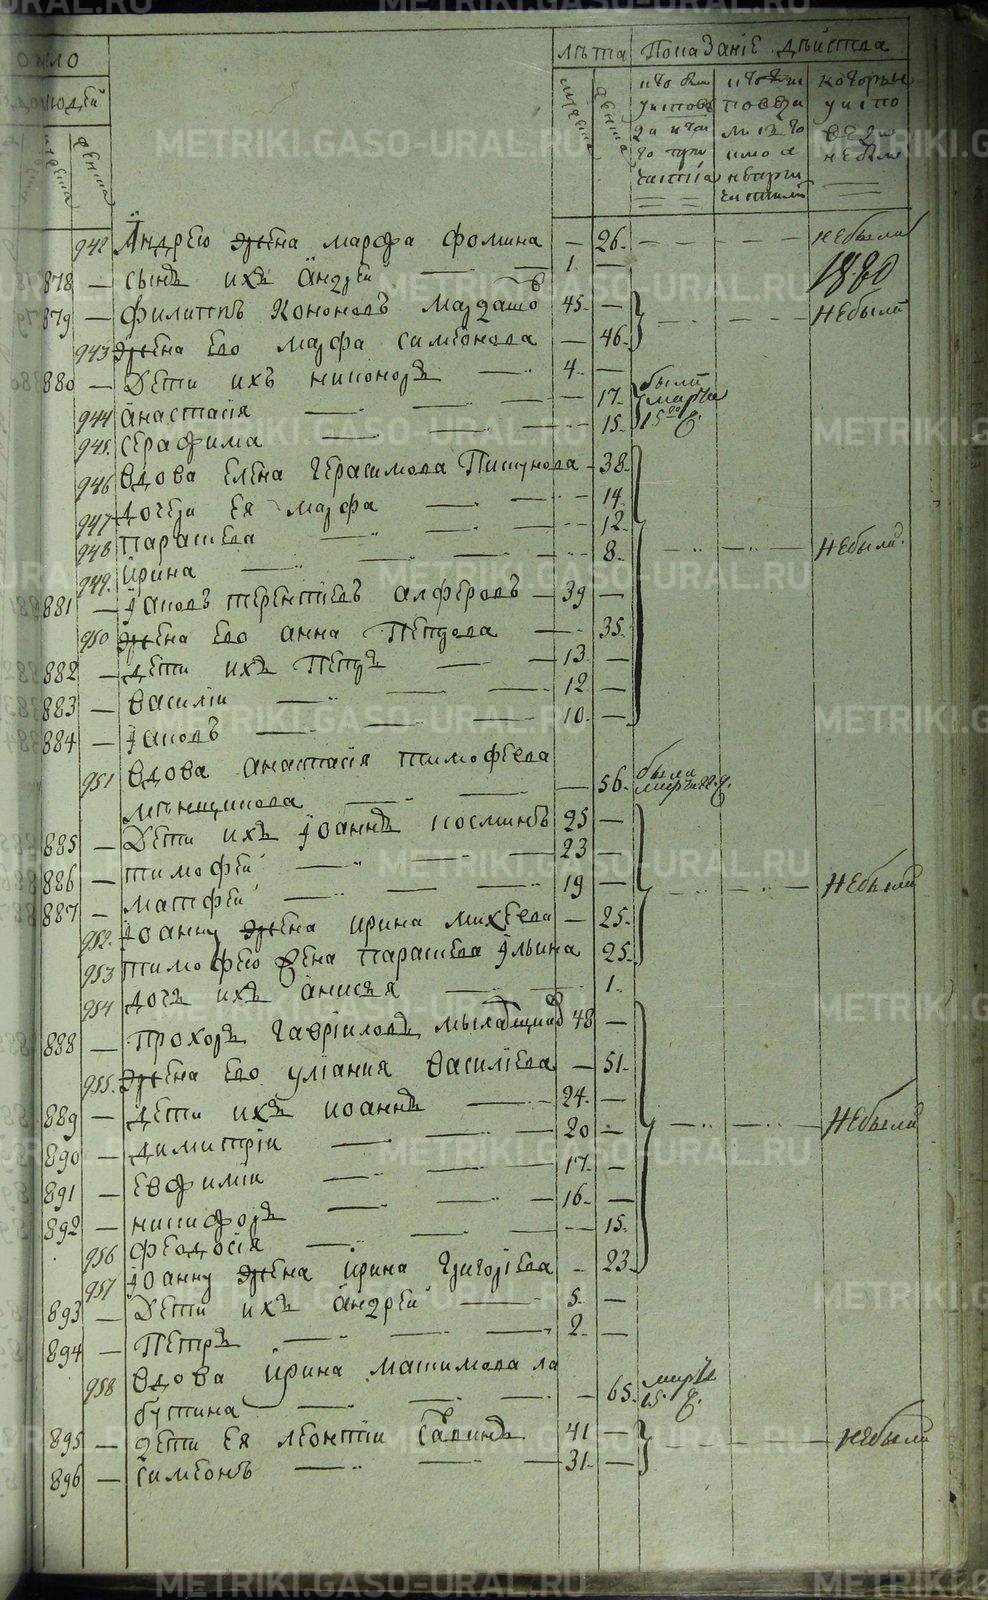 лѣта Показанїе дѣиства
людей
мужеска женска
942 Андрею жена марфа фомина — 26 — — — небыли
878 — сынъ ихъ андрей — 1 — 1880
879 — филиппъ Кононовъ 45 — небыли
943 жена его марфа симеонова — 46
880 — Дети ихъ никоноръ — 4 —
944 анастасїя — 17 были марта
945 серафима — 15 15
946 вдова елена герасимова Пишунова — 38
947 дочери ея марфа — 14
948 параскева — 12
949 ирина — 8 небыли
881 — Їаковъ терентїевъ алферовъ — 39 —
950 жена его анна Петрова — 35
882 — дети ихъ Петръ — 13 —
883 — василїи — 12 —
884 — Їаковъ — 10 —
951 вдова анастасїя тимофеева
меншикова — 56 была
885 — Дети ихъ Їоаннъ косминъ 25 —
886 — тимофей — 23 —
887 — матфей — 19 — небыли
952 Їоанну жена ирина михеева — 25
953 тимофею жена параскева ильина 25
954 дочь ихъ анисья — 1
888 — Прохоръ гаврїиловъ 48 —
955 жена его улїания василїева — 51
889 — дети ихъ иоаннъ — 24 — небыли
890 — димитрїи — 20 —
891 — евфимїи — 17 —
892 — никифоръ — 16 —
956 феодосїя — 15
957 Їоанну жена ирина григорїева — 23
893 — Дети ихъ андрей — 5 —
894 — Петръ — 2 —
958 вдова ирина максимова ла
бутина — 65 15
895 — дети ея леонтїи Савинъ 41 — небыли
896 — симеонъ — 31 —
METRIKI.GASO-URAL.RU